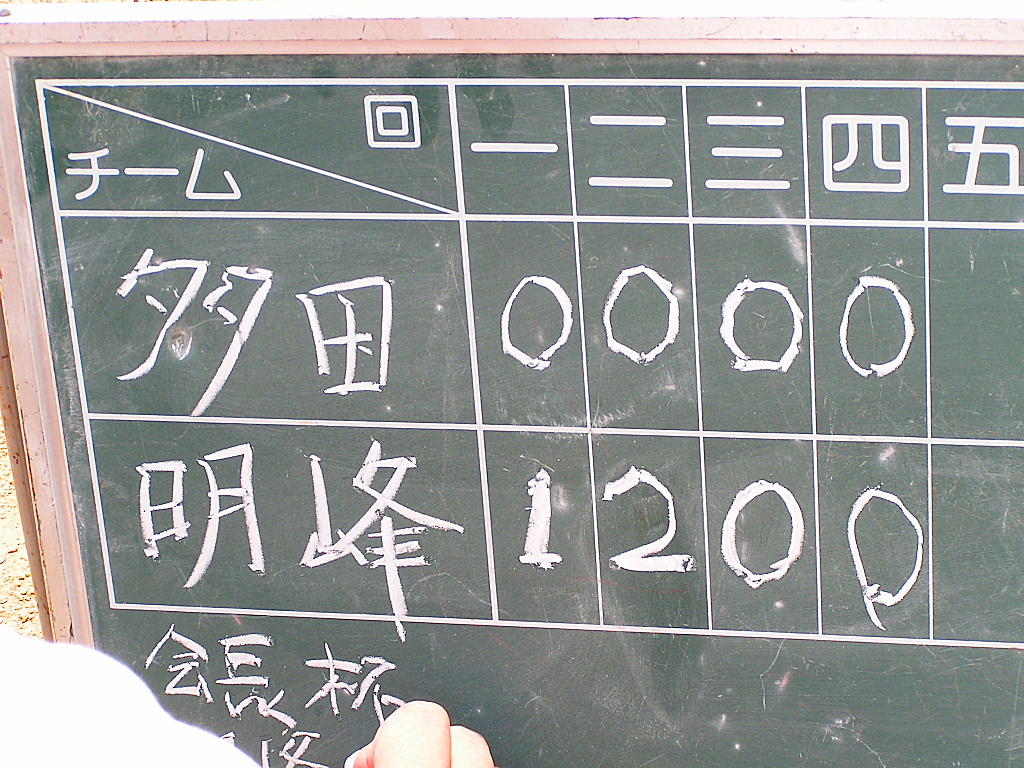 チーム 回 一 二 三 四 五
多田 0 0 0 0
明峰 1 2 0 0
会長杯